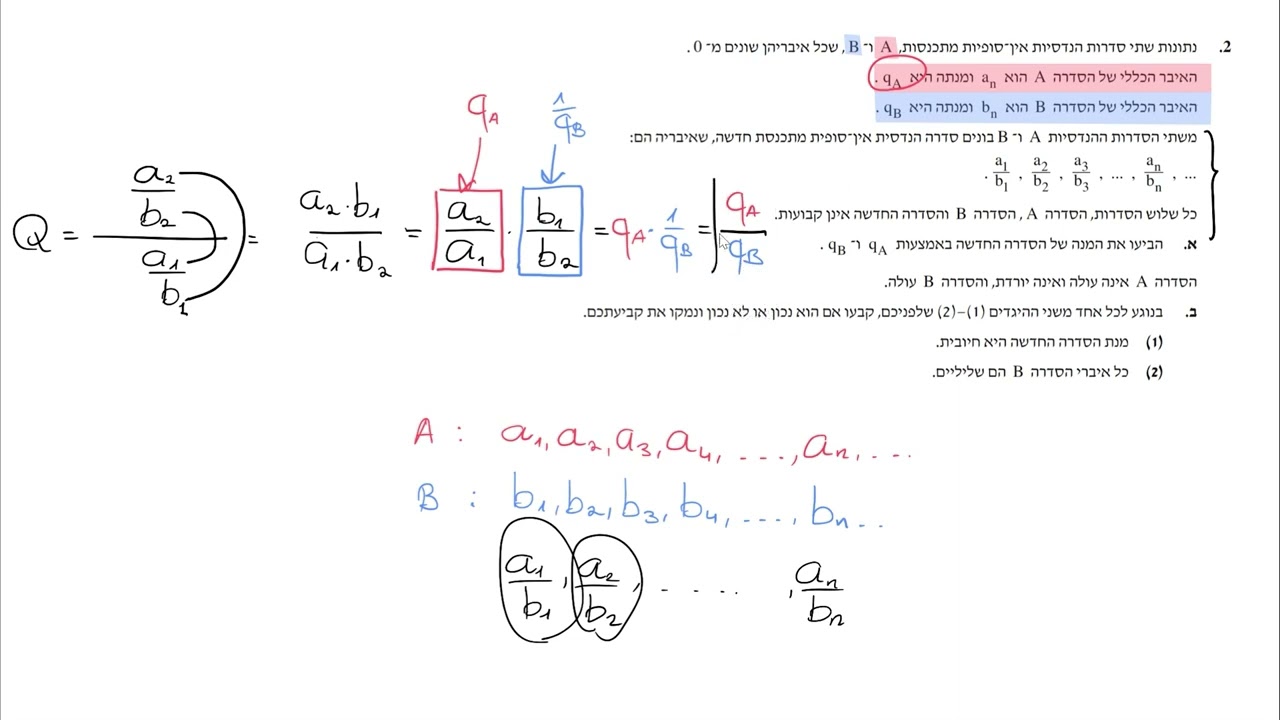 2. נתונות שתי סדרות הנדסיות אין־סופיות מתכנסות, A ו־ B, שכל איבריהן שונים מ־ 0.
האיבר הכללי של הסדרה A הוא aₙ ומנתה היא q_A.
האיבר הכללי של הסדרה B הוא bₙ ומנתה היא q_B.
משתי הסדרות ההנדסיות A ו־ B בונים סדרה הנדסית אין־סופית מתכנסת חדשה, שאיבריה הם:
a₁/b₁ , a₂/b₂ , a₃/b₃ , ... , aₙ/bₙ , ... .
כל שלוש הסדרות, הסדרה A, הסדרה B והסדרה החדשה אינן קבועות.
א. הביעו את המנה של הסדרה החדשה באמצעות q_A ו־ q_B.
הסדרה A אינה עולה ואינה יורדת, והסדרה B עולה.
ב. בנוגע לכל אחד משני ההיגדים (1)–(2) שלפניכם, קבעו אם הוא נכון או לא נכון ונמקו את קביעתכם.
(1) מנת הסדרה החדשה היא חיובית.
(2) כל איברי הסדרה B הם שליליים.
q_A 1/q_B
Q = (a₂/b₂)/(a₁/b₁) = (a₂·b₁)/(a₁·b₂) = a₂/a₁ · b₁/b₂ = q_A · 1/q_B = q_A/q_B
A : a₁, a₂, a₃, a₄, ...., aₙ, ...
B : b₁, b₂, b₃, b₄, ...., bₙ ...
a₁/b₁ , a₂/b₂ , . . . . . , aₙ/bₙ